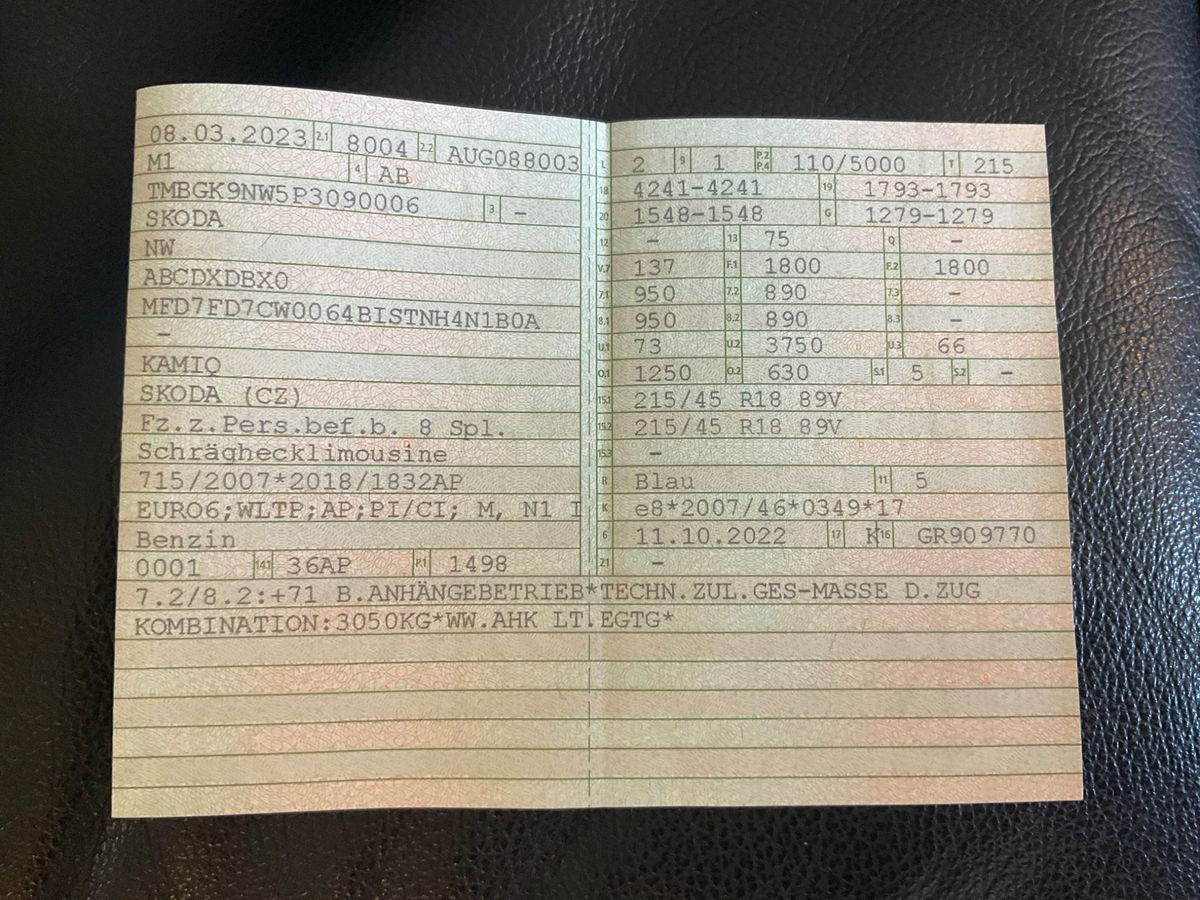 08.03.2023 2.1 8004 2.2 AUG088003
M1 4 AB
TMBGK9NW5P3090006 3 –
SKODA
NW
ABCDXDBX0
MFD7FD7CW0064BISTNH4N1B0A
–
KAMIQ
SKODA (CZ)
Fz.z.Pers.bef.b. 8 Spl.
Schräghecklimousine
715/2007*2018/1832AP
EURO6;WLTP;AP;PI/CI; M, N1 I
Benzin
0001 14.1 36AP P.1 1498
L 2 9 1 P.2 P.4 110/5000 T 215
18 4241-4241 19 1793-1793
20 1548-1548 G 1279-1279
12 – 13 75 Q –
V.7 137 F.1 1800 F.2 1800
7.1 950 7.2 890 7.3 –
8.1 950 8.2 890 8.3 –
U.1 73 U.2 3750 U.3 66
O.1 1250 O.2 630 S.1 5 S.2 –
15.1 215/45 R18 89V
15.2 215/45 R18 89V
15.3 –
R Blau 11 5
K e8*2007/46*0349*17
6 11.10.2022 17 K 16 GR909770
21 –
7.2/8.2:+71 B.ANHÄNGEBETRIEB*TECHN.ZUL.GES-MASSE D.ZUG
KOMBINATION:3050KG*WW.AHK LT.EGTG*